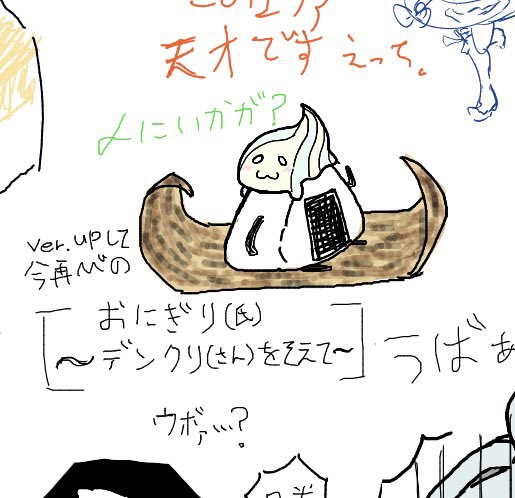 天才です えっち。
〆にいかが?
ver.upして
今再べの
おにぎり(氏)
〜デンクリ(さん)をそえて〜
うばぁ
ウボァ…?